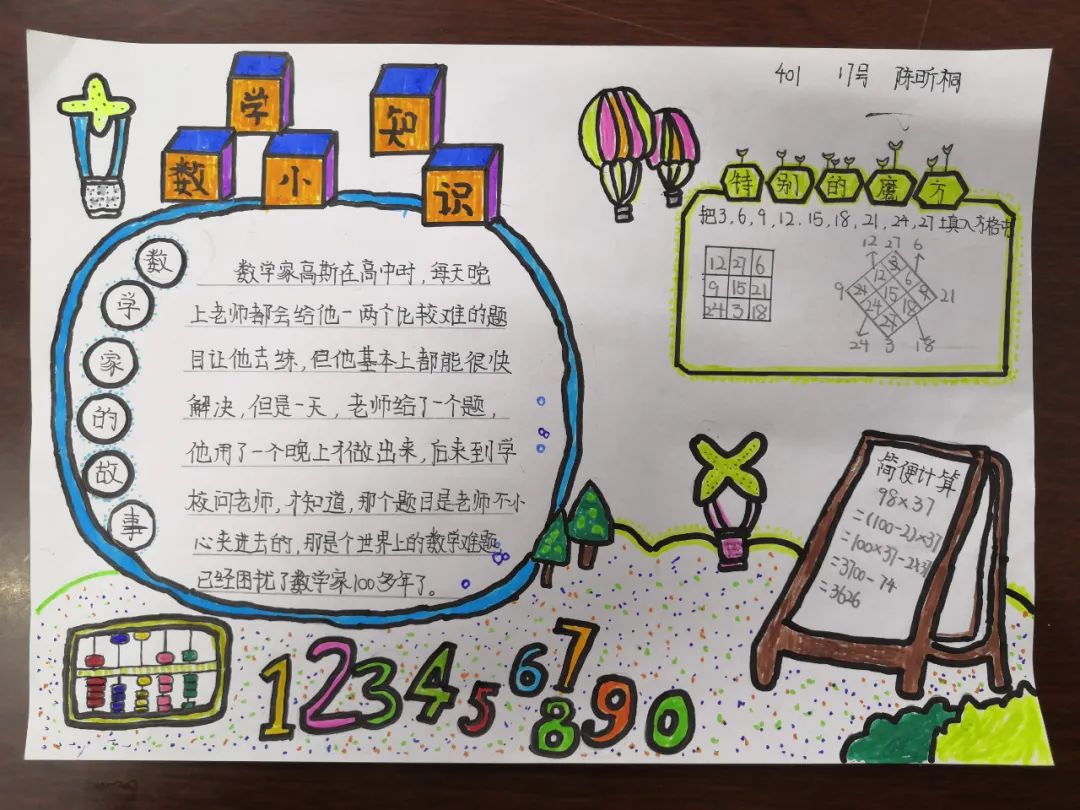 401 17号 陈昕桐
数学小知识
数学家的故事
数学家高斯在高中时,每天晚
上老师都会给他一两个比较难的题
目让他去练,但他基本上都能很快
解决,但是一天,老师给了一个题,
他用了一个晚上才做出来,后来到学
校问老师,才知道,那个题目是老师不小
心夹进去的,那是个世界上的数学难题,
已经困扰了数学家100多年了。
特别的魔方
把3,6,9,12,15,18,21,24,27填入方格中
12 27 6
9 15 21
24 3 18
12 27 6
3
12 6
9 21 15 9 21
24 18
27
24 3 18
简便计算
98×37
=(100-2)×37
=100×37-2×37
=3700-74
=3626
1 2 3 4 5 6 7 8 9 0